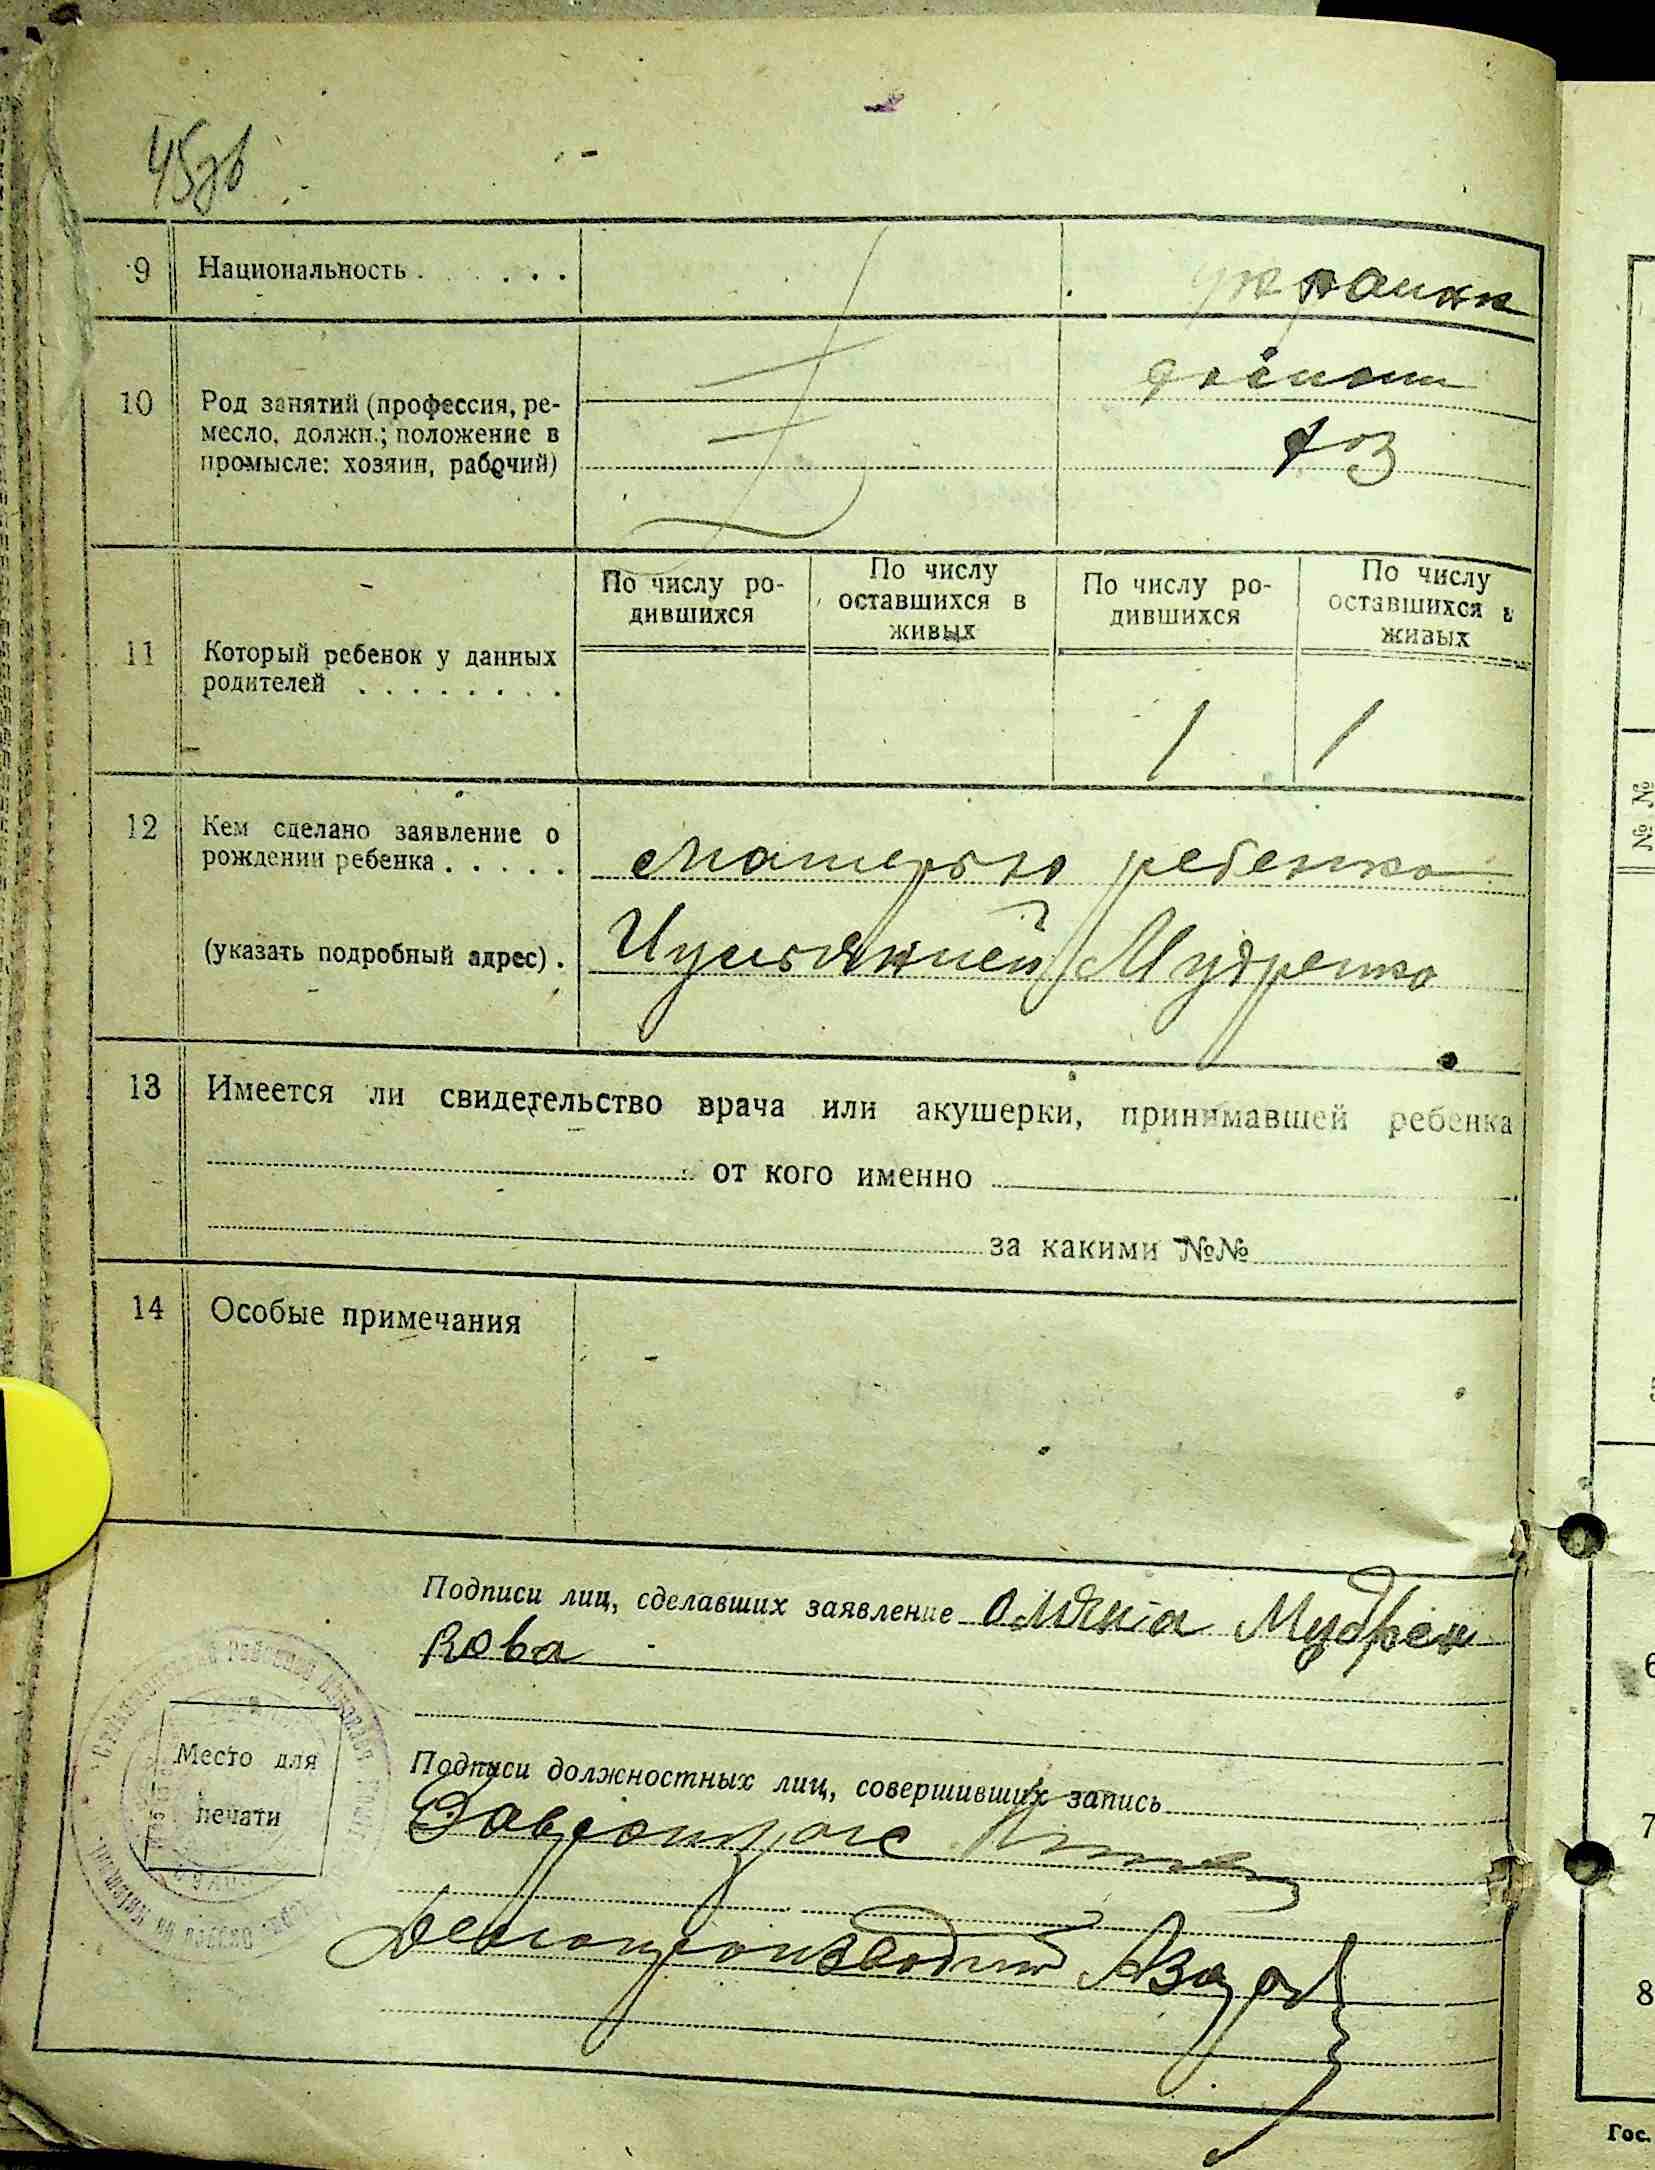 45об
9 Национальность . . . . . украинк
10 Род занятий (профессия, ре-
месло, должн.; положение в
промысле: хозяин, рабочий)
11 Который ребенок у данных
родителей . . . . . . . . .
По числу ро-
дившихся
По числу
оставшихся в
живых
По числу ро-
дившихся
По числу
оставшихся в
живых
1 1
12 Кем сделано заявление о
рождении ребенка . . . . .
(указать подробный адрес) .
Матерью ребенка
Мудренко
13 Имеется ли свидетельство врача или акушерки, принимавшей ребенка
от кого именно
за какими №№
14 Особые примечания
Подписи лиц, сделавших заявление Мудрен
кова
Место для
печати
Подписи должностных лиц, совершивших запись
Делопроизводит
№ №
6
7
8
Гос.